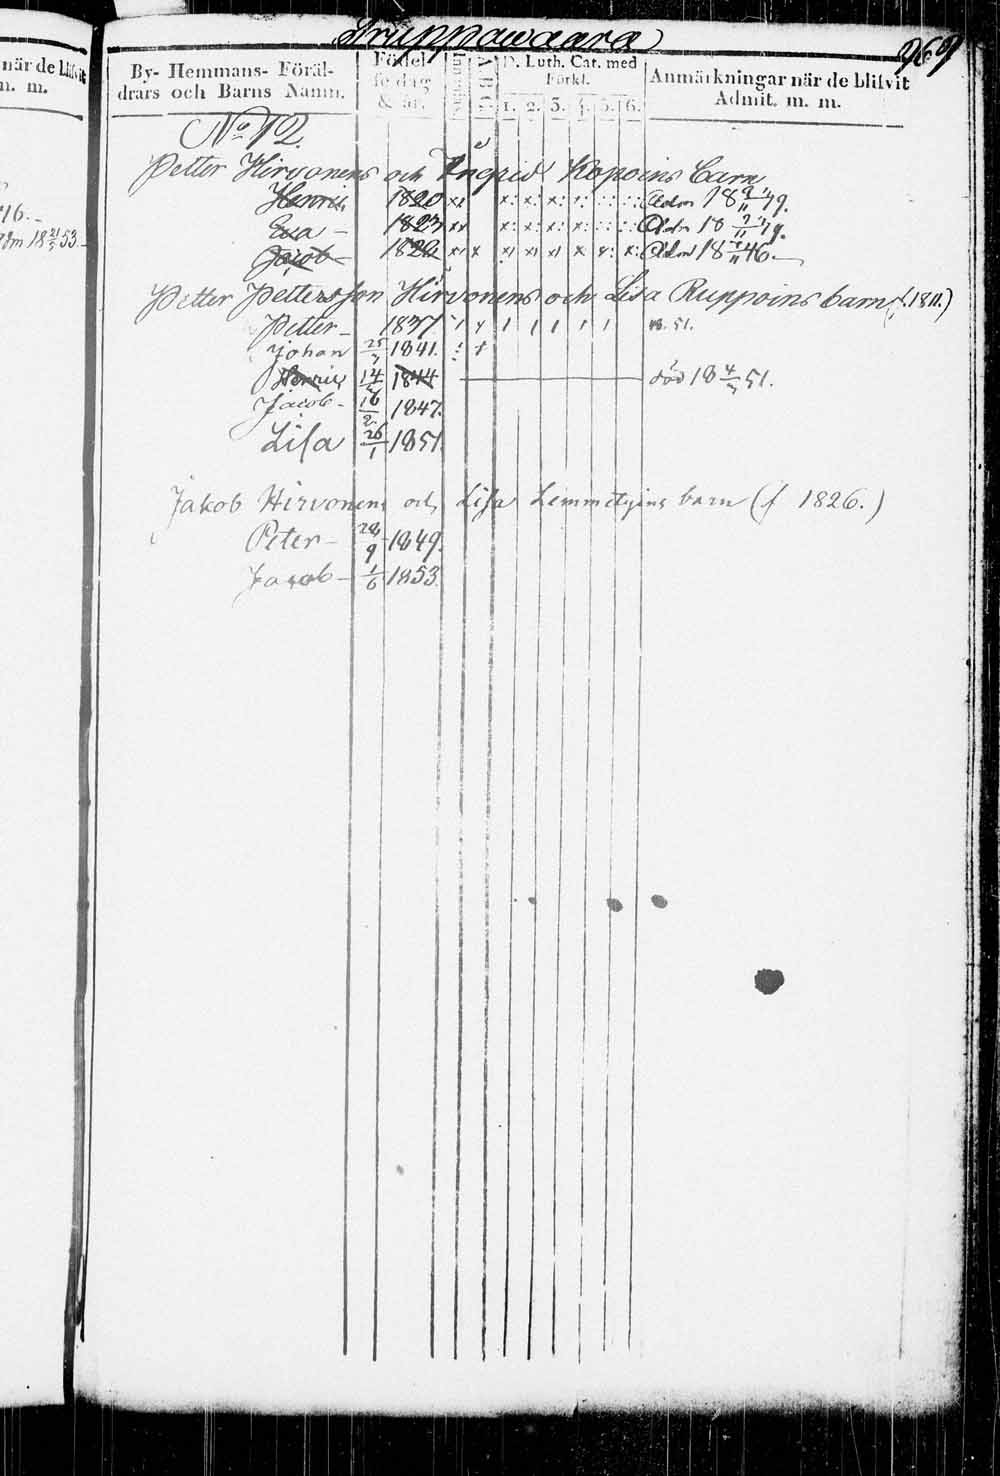 när de blifvit
n. m.
16.
adm 18 21/5 53.
Truppawaara
969
By- Hemmans- Föräl-
drars och Barns Namn.
Födel-
se dag
& år.
A B C
D. Luth. Cat. med
Förkl.
1. 2. 3. 4. 5. 6.
Anmärkningar när de blifvit
Admit. m. m.
No 12.
Petter Hirvonens och Ingrid Kopoins barn
Henric 1820 Adm 18 49.
Eva 1823 Adm 18 49.
Jacob 1826 Adm 18 46.
Petter Pettersson Hirvonens och Lisa Ruppoins barn (f. 1811.)
Petter 1837 51.
Johan 1841.
Henric 14 1844 död 18 4 51.
Jacob 16/2 1847.
Lisa 26/1 1851.
Jakob Hirvonens och Lisa Lemmetyins barn (f 1826.)
Peter 28/9 1849.
Jacob 1/6 1853.